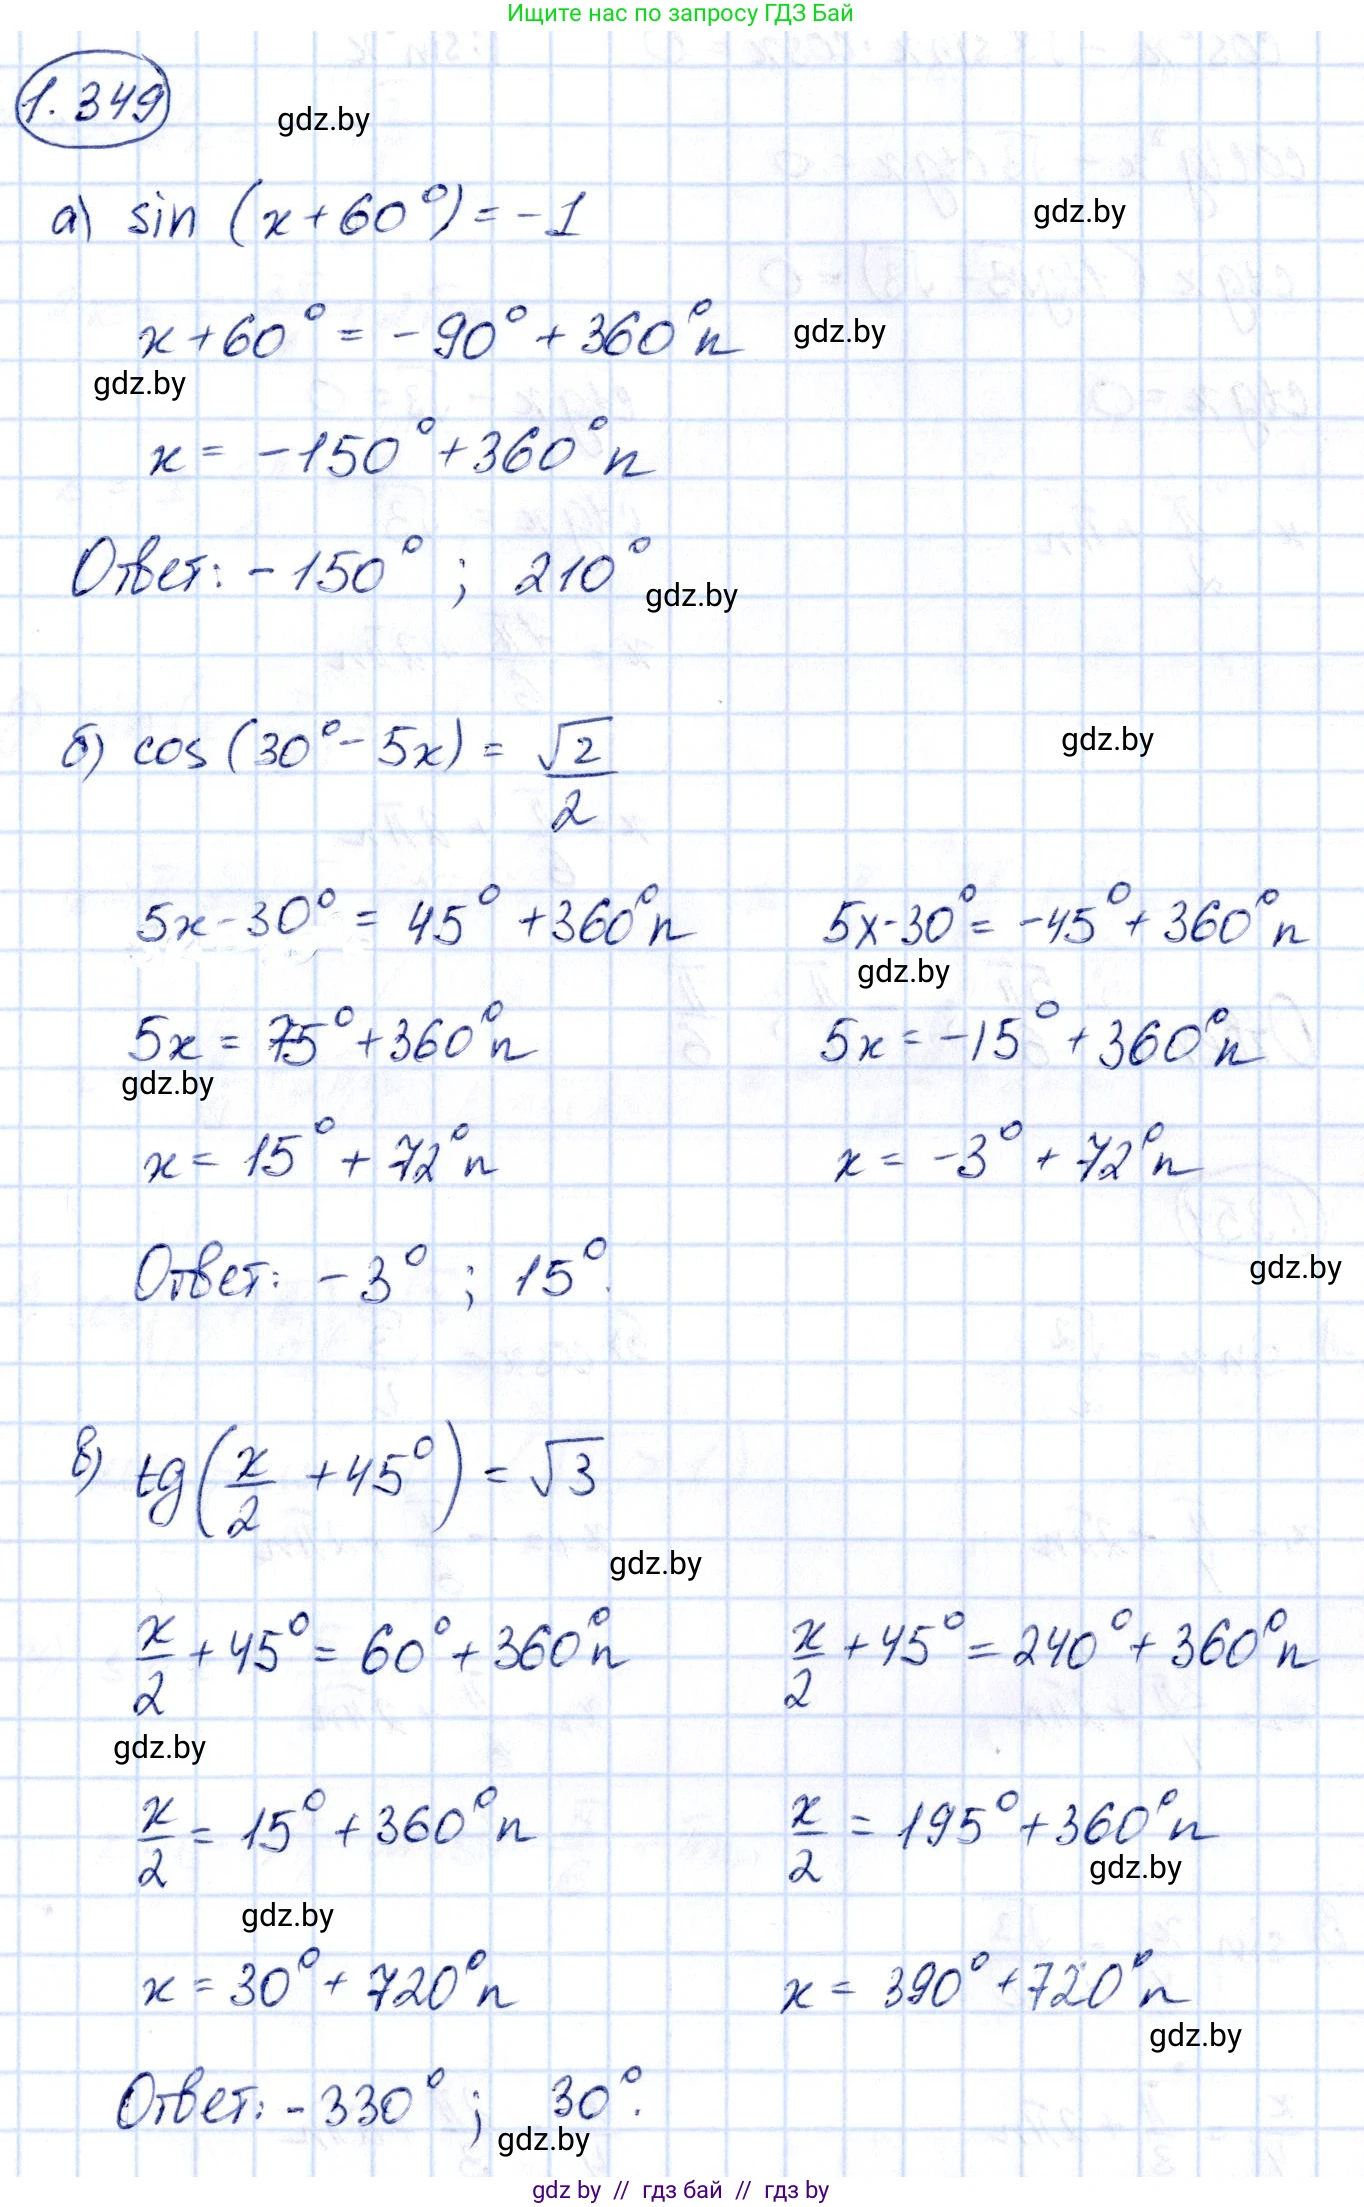 Ищите нас по запросу ГДЗ Бай
1.349
gdz.by
а) sin (x+60°) = -1
gdz.by
x+60° = -90° + 360°n
gdz.by
gdz.by
x = -150° + 360°n
Ответ: -150° ; 210°
gdz.by
б) cos (30° - 5x) = √2/2
gdz.by
5x - 30° = 45° + 360°n    5x - 30° = -45° + 360°n
gdz.by
5x = 75° + 360°n    5x = -15° + 360°n
gdz.by
x = 15° + 72°n    x = -3° + 72°n
Ответ: -3° ; 15°.
gdz.by
в) tg (x/2 + 45°) = √3
gdz.by
x/2 + 45° = 60° + 360°n    x/2 + 45° = 240° + 360°n
gdz.by
x/2 = 15° + 360°n    x/2 = 195° + 360°n
gdz.by
gdz.by
x = 30° + 720°n    x = 390° + 720°n
gdz.by
Ответ: -330° ; 30°.
gdz.by
gdz by // гдз бай // гдз by